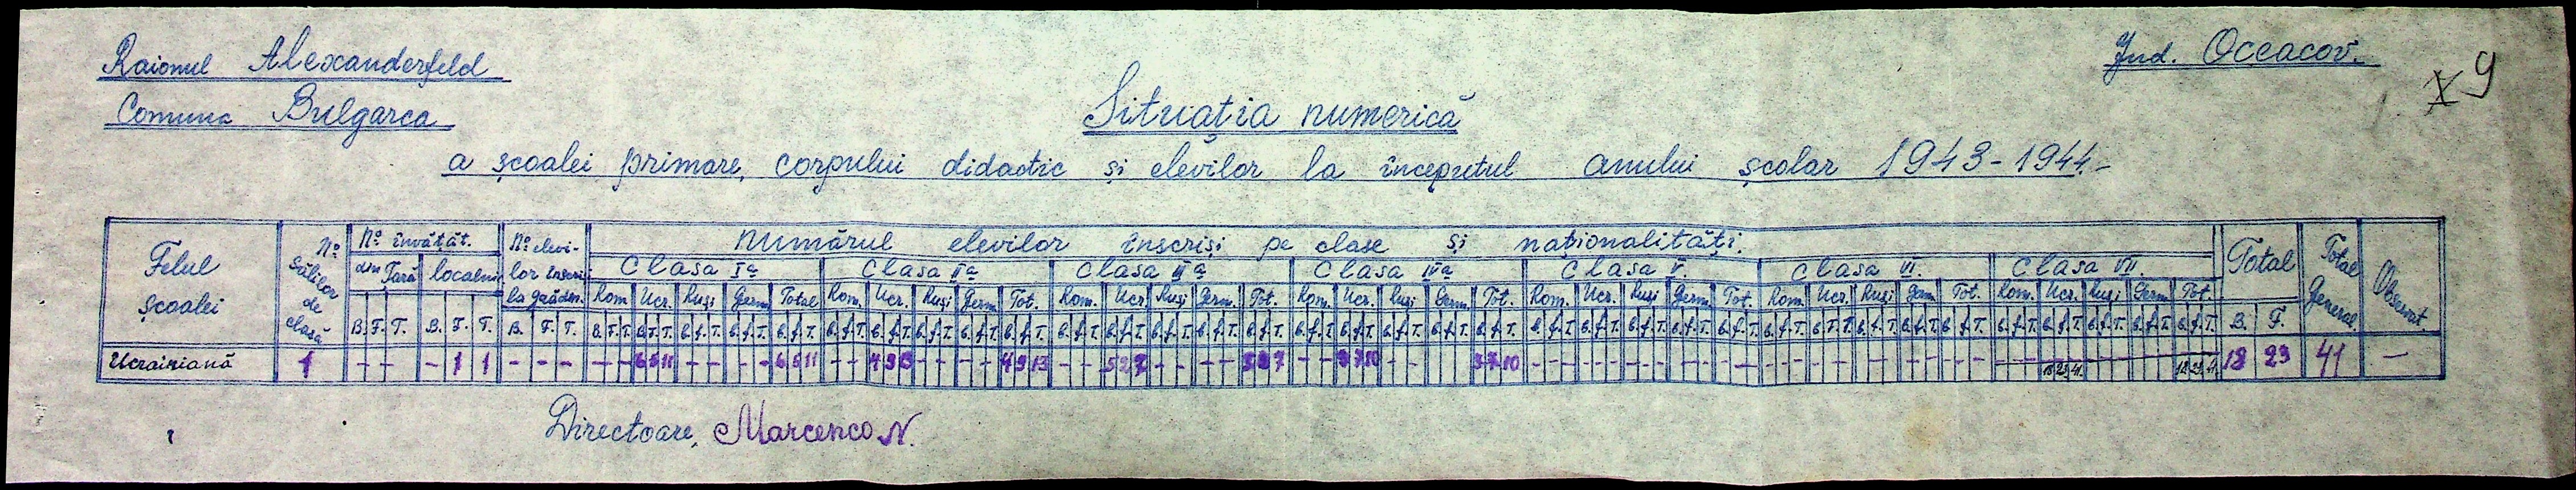 Raionul Alexanderfeld
Jud. Oceacov.
X 9
Comuna Bulgarca
Situația numerică
a școalei primare, corpului didactic și elevilor la începutul anului școlar 1943-1944.-
Felul școalei | No sălilor de clasă | No învățăt. | No elevilor înscriși la grădin. | Numărul elevilor înscriși pe clase și naționalități. | Total | Total General | Observat.
din Țară | localnici | Clasa Ia | Clasa IIa | Clasa IIIa | Clasa IVa | Clasa V. | Clasa VI. | Clasa VII.
Rom. Ucr. Ruși Germ. Total | Rom. Ucr. Ruși Germ. Tot. | Rom. Ucr. Ruși Germ. Tot. | Rom. Ucr. Ruși Germ. Tot. | Rom. Ucr. Ruși Germ. Tot. | Rom. Ucr. Ruși Germ. Tot. | Rom. Ucr. Ruși Germ. Tot.
B. F. T. | B. F. T. | B. F. T. | B. F. T. | B. F.
Ucrainiană | 1 | - - | - 1 1 | - - - | - - 6 5 11 - - - - 6 5 11 | - - 4 9 13 - - - - 4 9 13 | - - 5 2 7 - - - - 5 2 7 | - - 3 7 10 - - 3 7 10 | 18 23 41 | 18 23 41 | 18 23 | 41 | —
Directoare, Marcenco N.